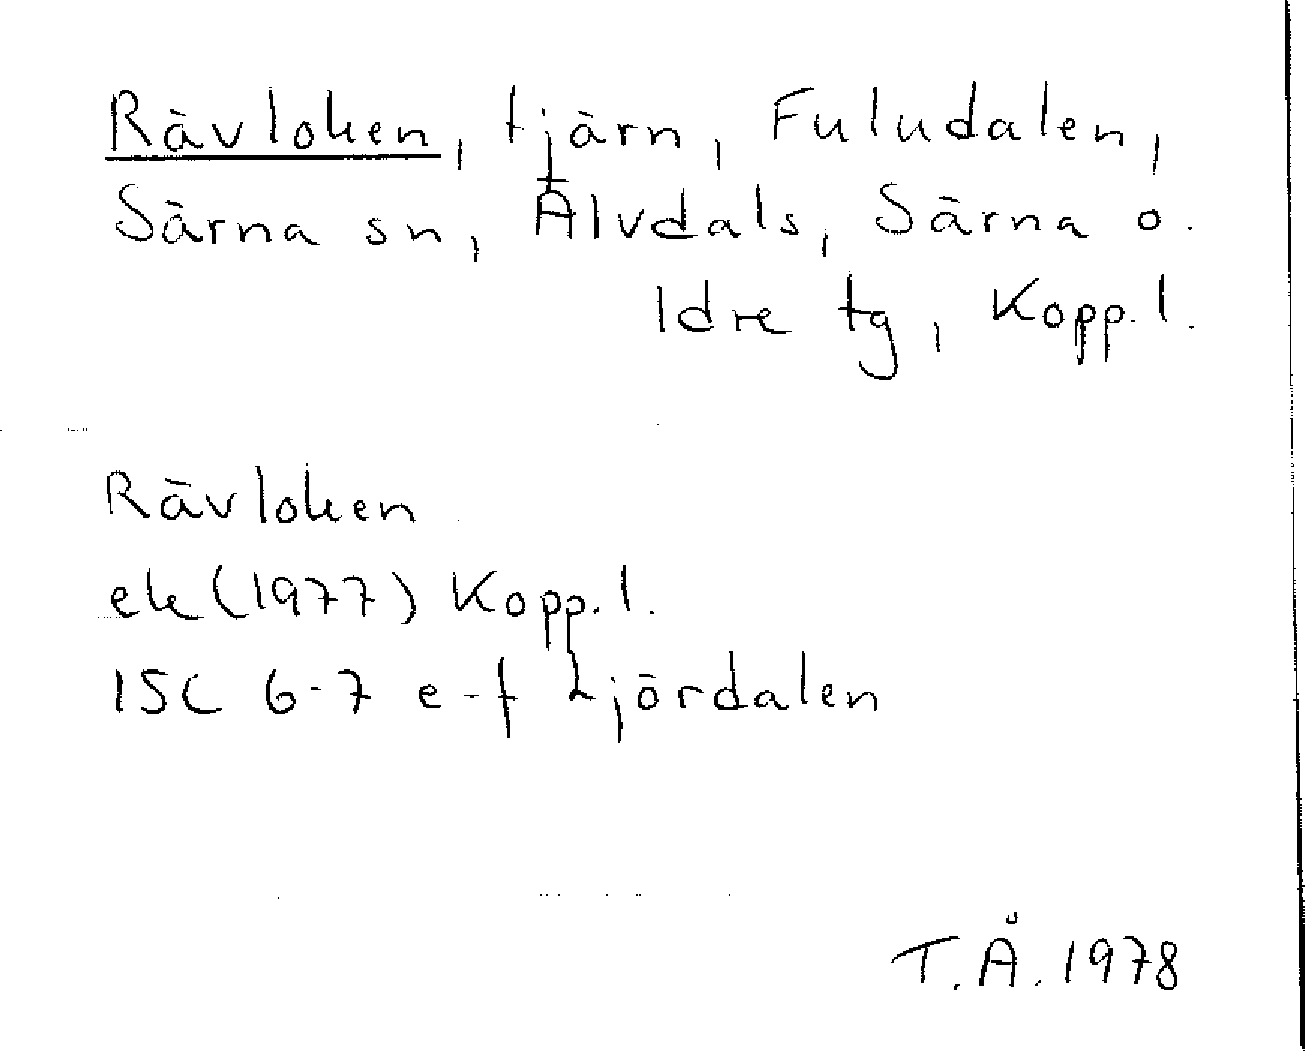 Rävloken, tjärn, Fuludalen,
Särna sn, Älvdals, Särna o.
Idre tg, Kopp. l.
Rävloken
ek (1977) Kopp. l.
15C 6-7 e-f Ljördalen
T.Å. 1978